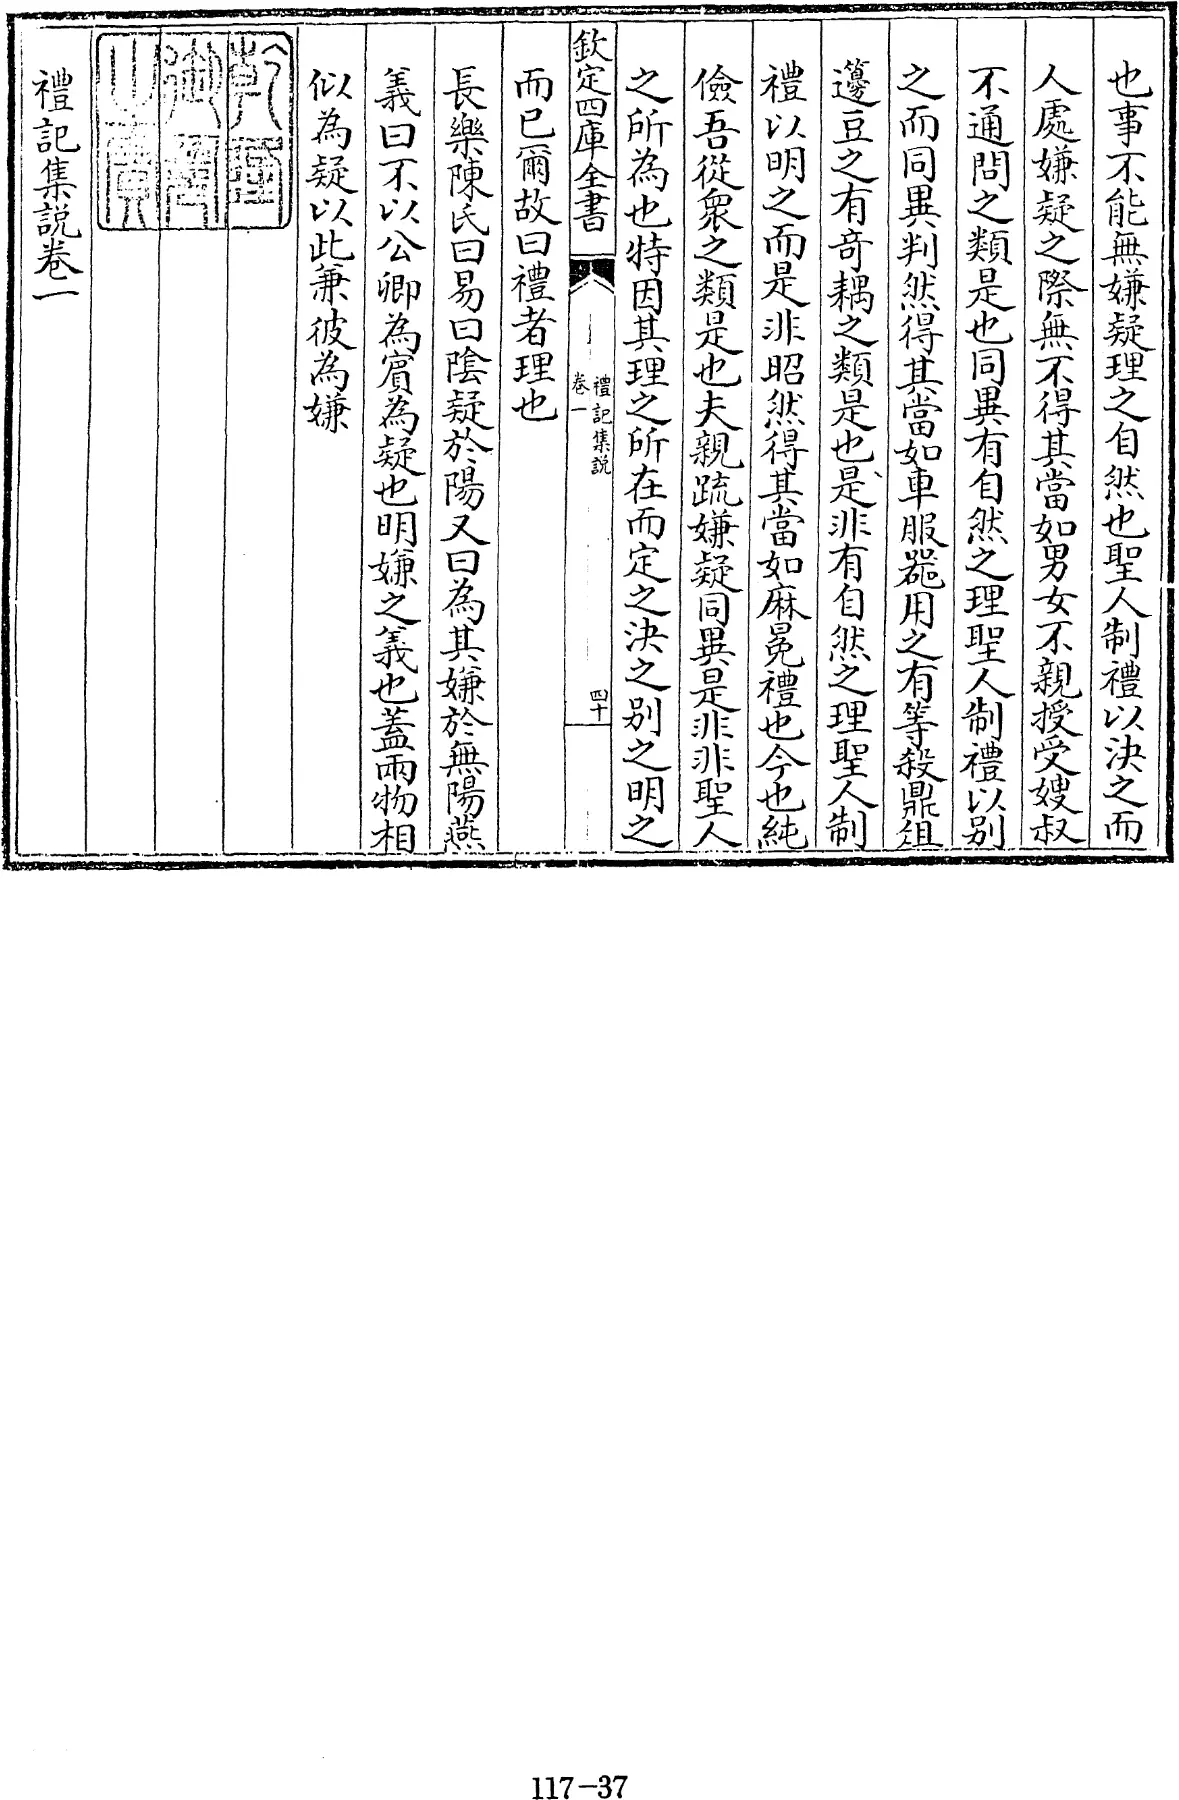 也事不能無嫌疑理之自然也聖人制禮以決之而
人處嫌疑之際無不得其當如男女不親授受嫂叔
不通問之類是也同異有自然之理聖人制禮以別
之而同異判然得其當如車服器用之有等殺鼎俎
籩豆之有奇耦之類是也是非有自然之理聖人制
禮以明之而是非昭然得其當如麻冕禮也今也純
儉吾從衆之類是也夫親疏嫌疑同異是非非聖人
之所為也特因其理之所在而定之決之別之明之
欽定四庫全書
禮記集説
卷一
四十
而已爾故曰禮者理也
長樂陳氏曰易曰陰疑於陽又曰為其嫌於無陽燕
義曰不以公卿為賓為疑也明嫌之義也蓋兩物相
似為疑以此兼彼為嫌
乾隆
御覽
之寶
禮記集説卷一
117-37